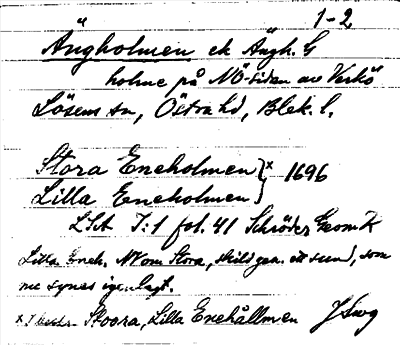 1-2
Ängholmen ek Ängh. G
holme på NÖ-sidan av Verkö
Lösens sn, Östra hd, Blek. l.
Stora Eneholmen } x 1696
Lilla Eneholmen
LSA I:1 fol. 41 Schröder Geom K
Lilla Eneh. NV om Stora, skild gm. ett sund, som
nu synes igenlagt.
Stoora, Lilla Enehållmen